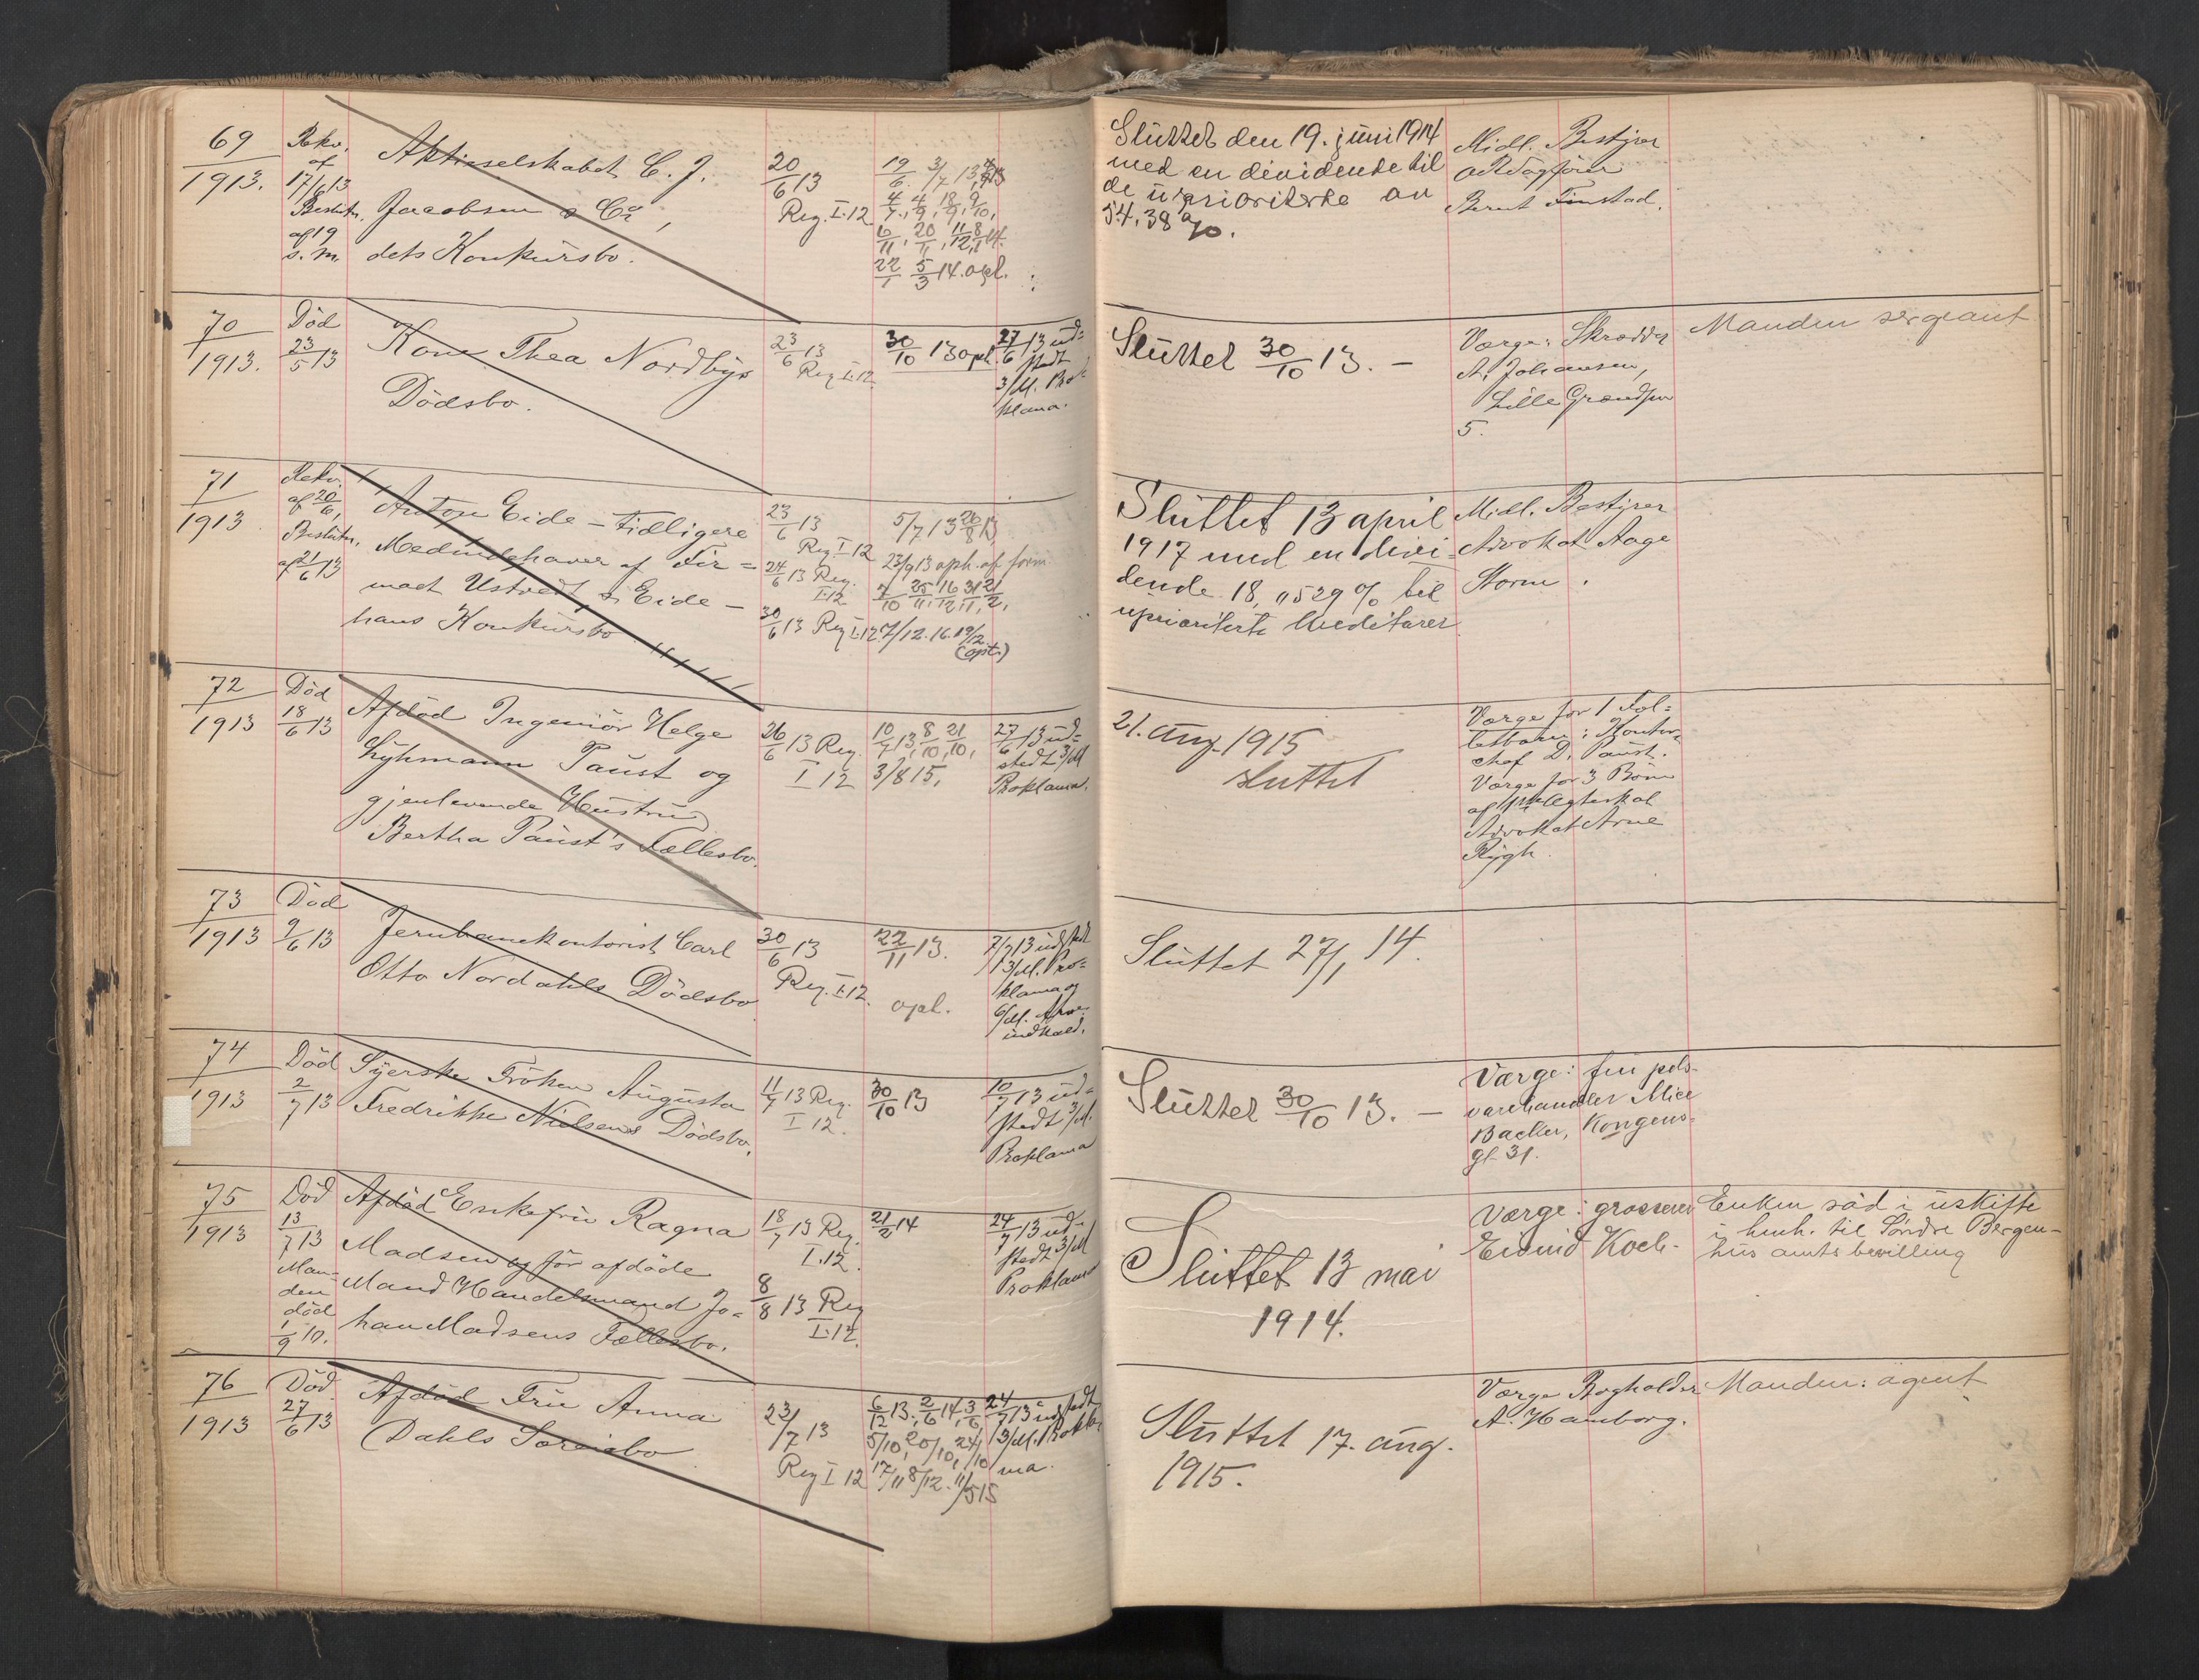 69
1913.
Rekv.
af
17/6 13
Beslutn.
af 19
s. m.
Aktieselskabet C. J.
Jacobsen & Co,
dets Konkursbo.
20/6 13
Reg. I.12
19/6. 3/7 13
4/7, 4/9, 18/9, 9/10,
6/11, 20/11, 11/12, 8/1 14.
22/1 5/3 14. opl.
Sluttet den 19. juni 1914
med en dividende til
de uprioriterte av
54,38 %.
Midl. Bestyrer
Bernt Finstad.
70
1913.
Død
23/5 13
Kone Thea Nordbys
Dödsbo.
23/6 13
Reg I.12
30/10 13 opl.
27/6 13 ud=
stedt
3/M. Prok
klama.
Sluttet 30/10 13. –
Værge: Skrædder
A. Johansen,
Lille Grændsen
5.
Manden sergeant
71
1913
Rekv.
af 20/6,
Beslutn.
af 21/6 13
Anton Eide – tidligere
Medindehaver af Fir=
maet Ustvedt & Eide –
hans Konkursbo
23/6 13
Reg I 12
24/6 13 Reg.
I.12
30/6 13 Reg I.12
5/7 13 26/8 13
23/9 13 oph. af form.
7/10 25/11, 16/12, 31/1, 21/2,
7/12. 16. 19/12
(opt.)
Sluttet 13 april
1917 med en divi-
dende 18,11529 % til
uprioriterte kreditorer.
Midl. Bestyrer
Advokat Aage
Storm.
72
1913
Död
18/6 13
Afdöd Ingeniör Helge
Lyhmann Paust og
gjenlevende Hustru
Bertha Paust's Fællesbo.
26/6 13 Reg.
I 12
10/7 13, 8/10, 21/10,
3/8 15,
27/6 13 ud=
stedt 3/M
Proklama.
21. aug. 1915
sluttet
Værge for 1 Fæl=
lesbarn: Kontor
chef D. Paust.
Værge for 3 Börn
af 1ste Ægteskab
Advokat Arne
Rygh.
73
1913
Död
9/6 13
Jernbanekontorist Carl
Otto Nordahls Dödsbo
30/6 13
Reg. I.12.
22/11 13.
opl.
7/7 13 udstedt
3/M. Pro=
klama og
6/M. Arve-
indkald.
Sluttet 27/1 14.
74
1913
Död
2/7 13
Syerske Fröken Augusta
Fredrikke Nielsens Dödsbo.
11/7 13 Reg.
I 12.
30/10 13
10/7 13 ud=
stedt 3/M.
Proklama
Sluttet 30/10 13. –
Værge: fru pels-
varehandler Alice
Backer, Kongens-
gt. 31.
75
1913
Död
13/7 13
Man-
den
död
1/9 10.
Afdöd Enkefru Ragna
Madsen og för afdöde
Mand Handelsmand Jo=
han Madsens Fællesbo.
18/7 13 Reg.
I.12.
8/8 13 Reg
I.12.
21/2 14
24/7 13 ud=
stedt 3/M
Proklama
Sluttet 13 mai
1914.
Værge: grosserer
Eivind Koch.
Enken sad i uskifte
i henh. til Søndre Bergen-
hus amts bevilling
76
1913
Död
27/6 13
Afdöd Fru Anna
Dahls Særeiebo
23/7 13
Reg I 12
6/12 13, 2/6 14, 3/6
5/10, 20/10, 24/10
17/11 8/12. 11/5 15
24/7 13 udstedt
3/M. Prokla
ma.
Sluttet 17. aug.
1915.
Værge Bogholder
A. Hamborg.
Manden: agent